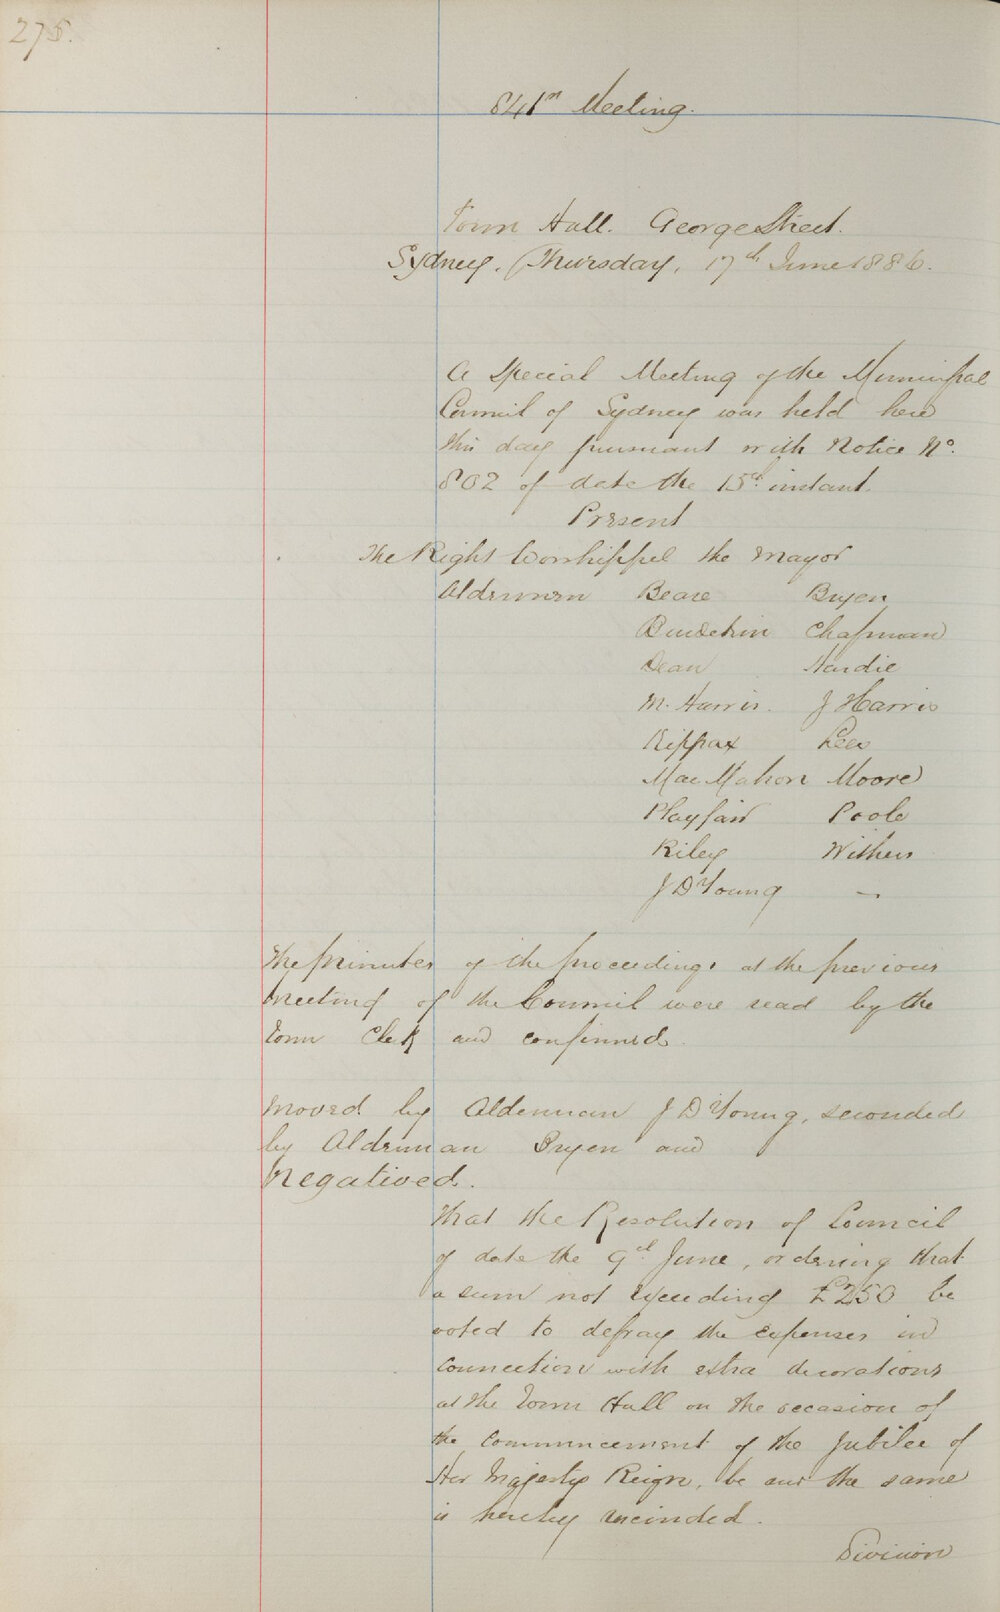 275.
841st Meeting.
Town Hall. George Street.
Sydney, Thursday, 17th June 1886.
A Special Meeting of the Municipal
Council of Sydney was held here
this day pursuant with Notice No.
802 of date the 15th instant.
Present
The Right Worshipful the Mayor
Aldermen Beare Bryen
Burdekin Chapman
Dean Hardie
M. Harris. J Harris
Kippax Lees
MacMahon Moore
Playfair Poole
Riley Withers
J D Young —
The Minutes of the proceedings at the previous
Meeting of the Council were read by the
Town Clerk and confirmed.
Moved by Alderman J D Young, seconded
by Alderman Bryen and
Negatived.
That the Resolution of Council
of date the 9th June, ordering that
a sum not exceeding £250 be
voted to defray the expenses in
connection with extra decorations
at the Town Hall on the occasion of
the commencement of the Jubilee of
Her Majestys Reign, be and the same
is hereby recinded.
Division